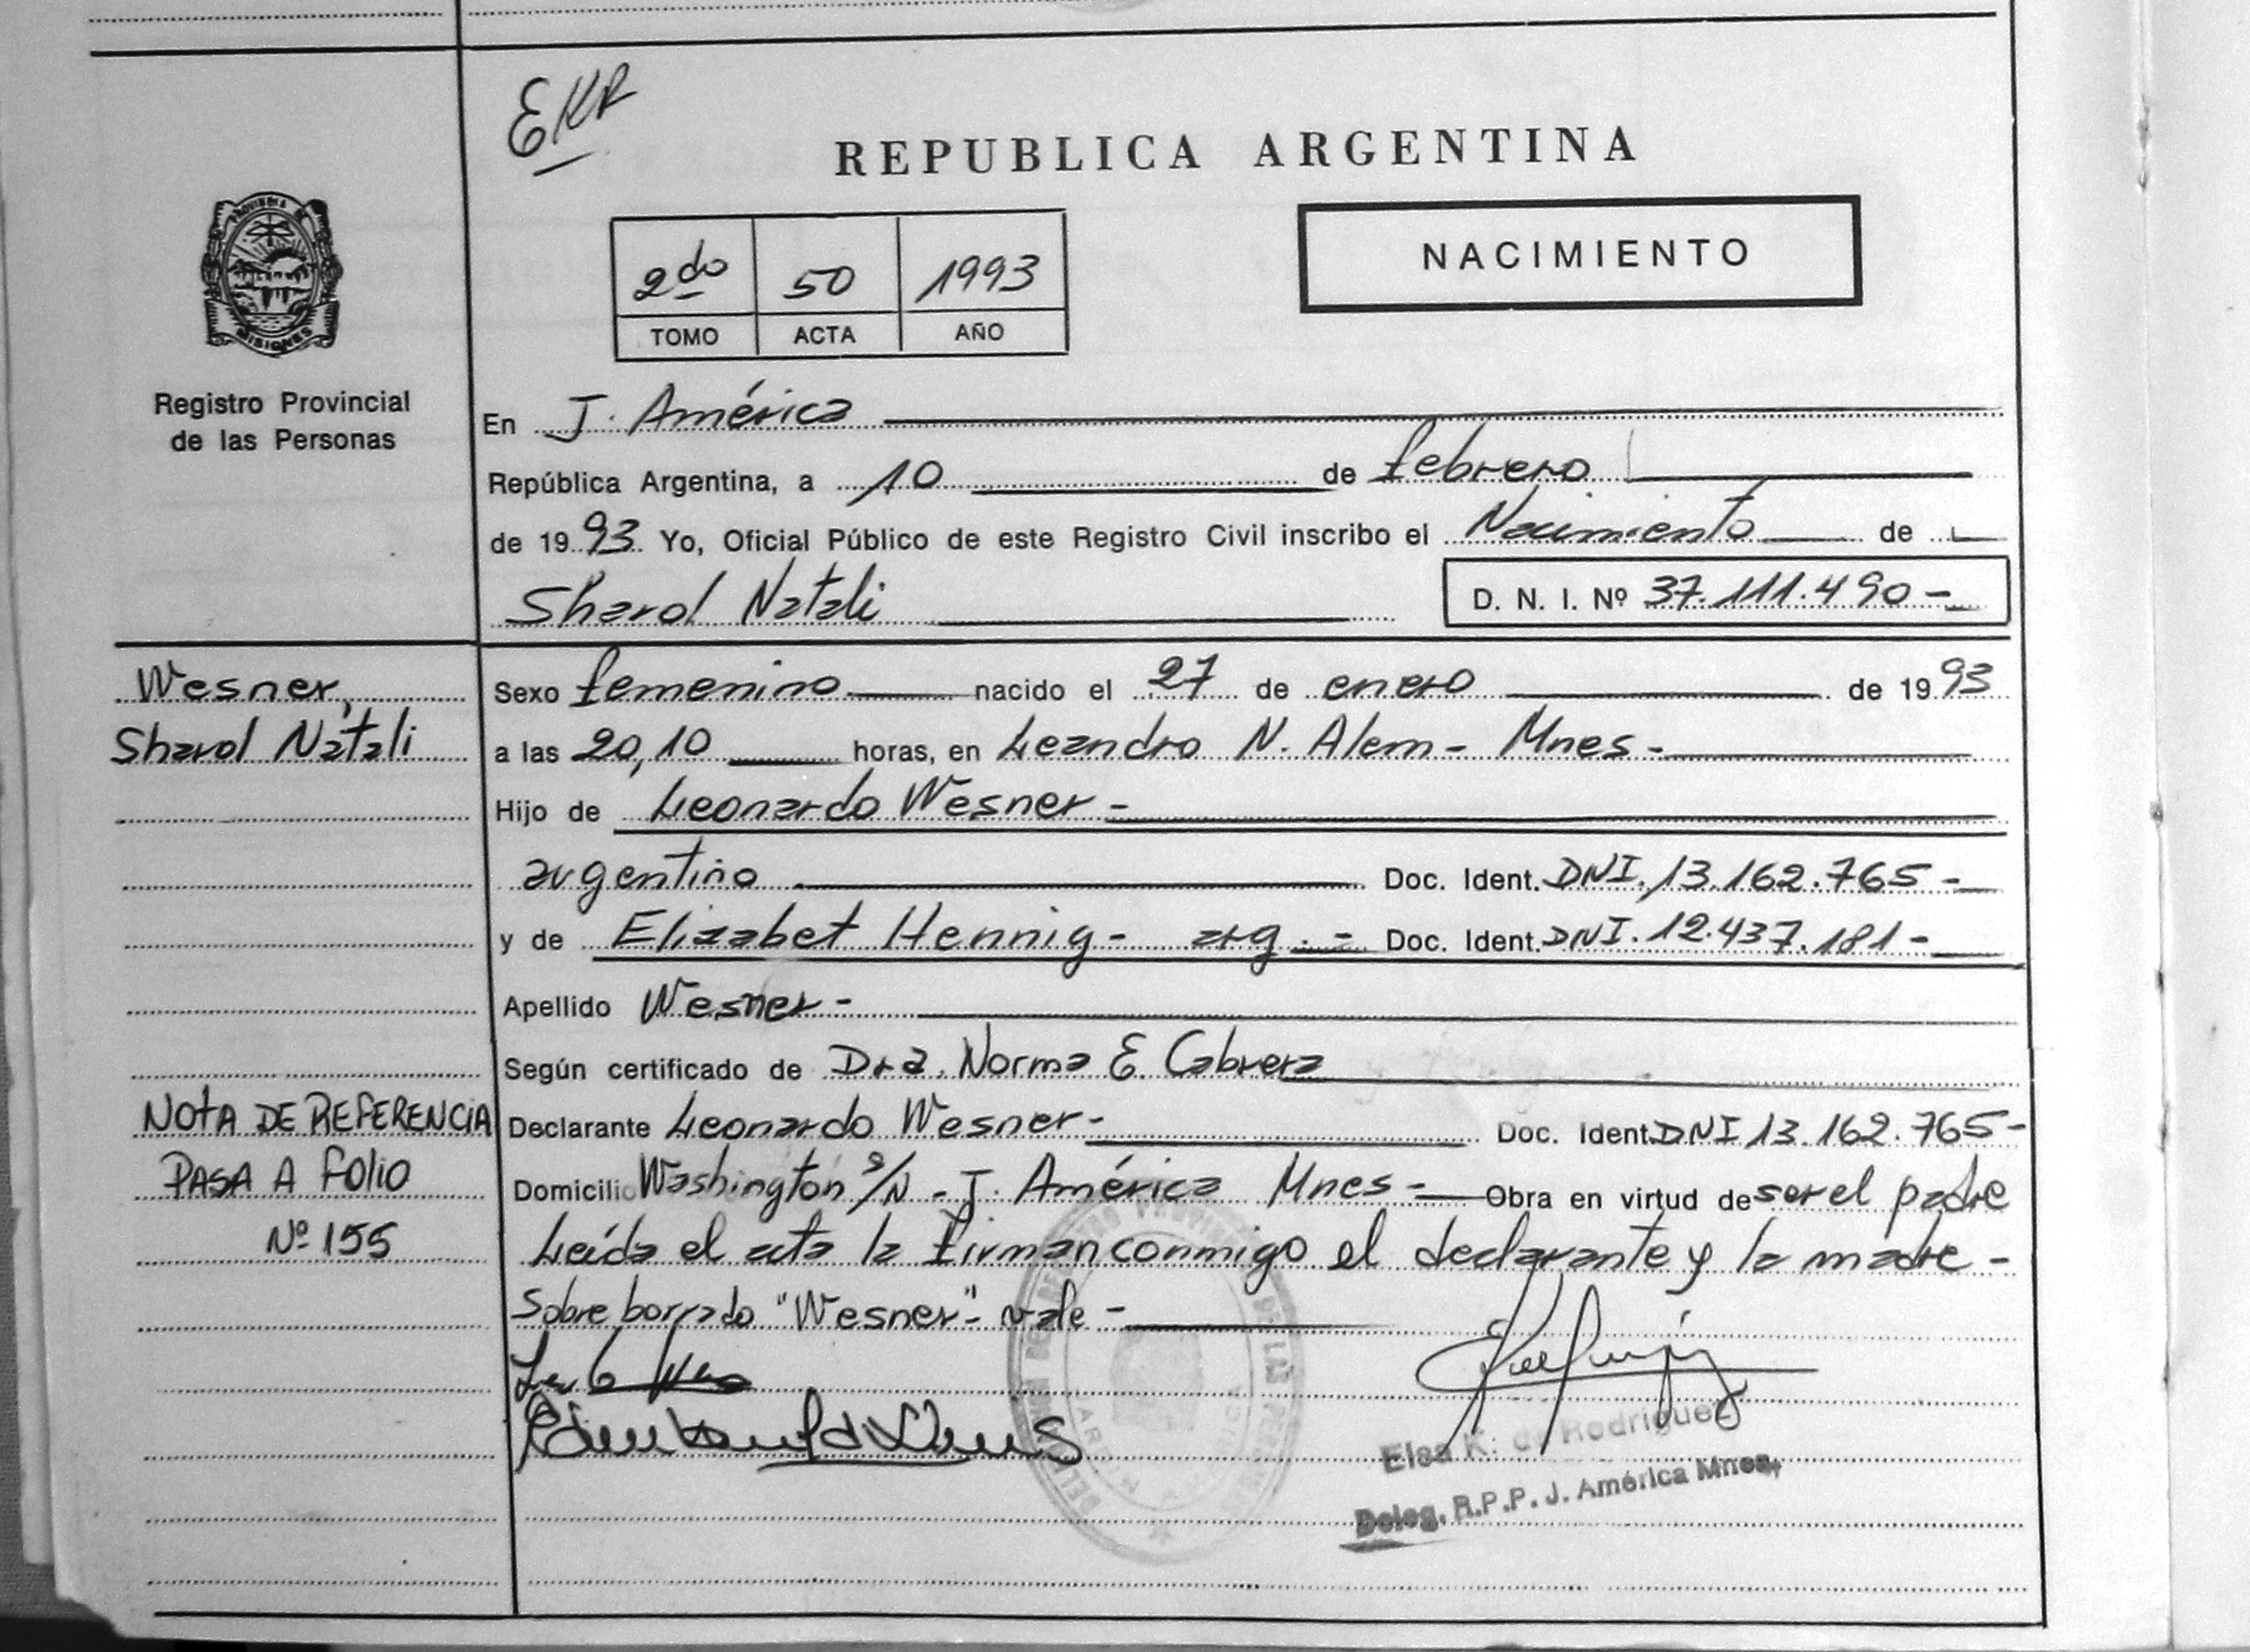 EKR
REPUBLICA ARGENTINA
PROVINCIA DE
MISIONES
Registro Provincial
de las Personas
2do 50 1993
TOMO ACTA AÑO
NACIMIENTO
En J. América
República Argentina, a 10 de febrero
de 1993 Yo, Oficial Público de este Registro Civil inscribo el Nacimiento de
Sharol Natali D. N. I. Nº 37.111.490-
Wesner,
Sharol Natali
Sexo femenino nacido el 27 de enero de 1993
a las 20,10 horas, en Leandro N. Alem- Mnes-
Hijo de Leonardo Wesner-
argentino Doc. Ident. DNI. 13.162.765-
y de Elizabet Hennig- arg.- Doc. Ident. DNI. 12.437.181-
Apellido Wesner-
Según certificado de Dra. Norma E. Cabrera
Declarante Leonardo Wesner- Doc. Ident. DNI 13.162.765-
Domicilio Washington s/N - J. América Mnes- Obra en virtud de ser el padre
NOTA DE REFERENCIA
PASA A FOLIO
Nº 155
Leída el acta la firman conmigo el declarante y la madre-
Sobre borrado "Wesner"- vale-
Elsa K. de Rodriguez
Deleg. R.P.P. J. América Mnes.